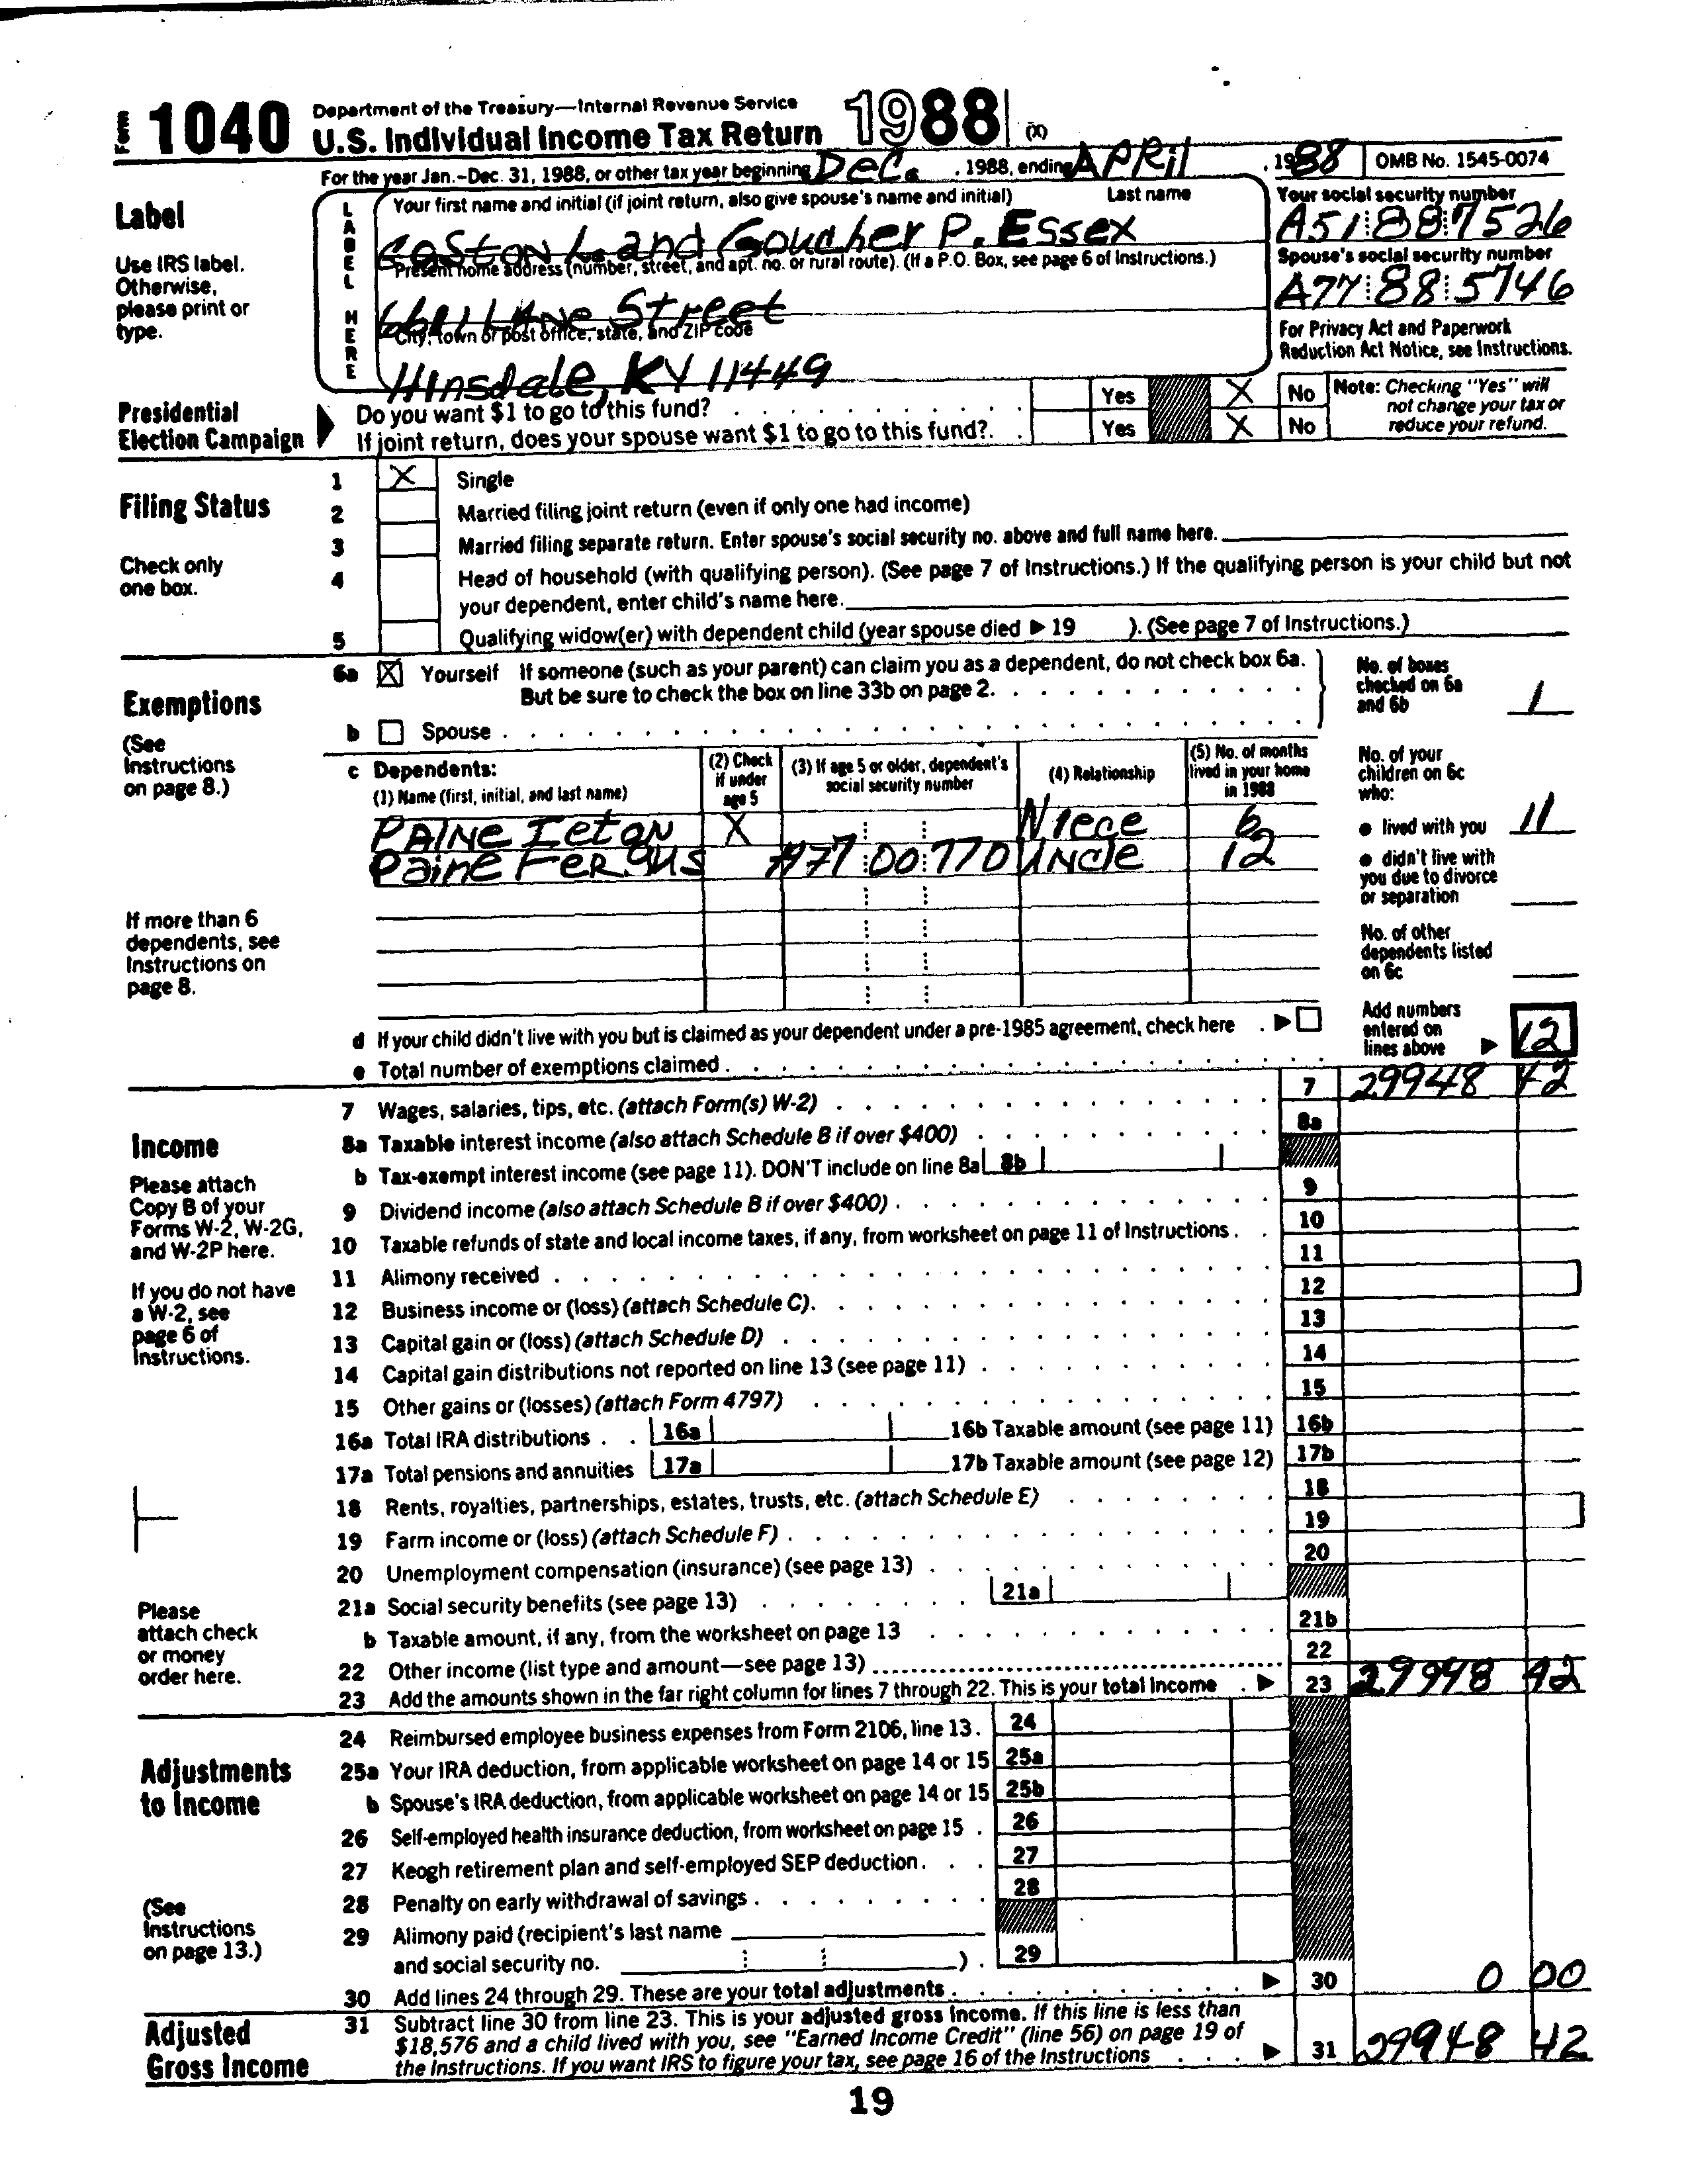 Form 1040 Department of the Treasury—Internal Revenue Service
U.S. Individual Income Tax Return 1988 (X)
For the year Jan.-Dec. 31, 1988, or other tax year beginning Dec. , 1988, ending APRil , 1988 OMB No. 1545-0074
Label
Use IRS label.
Otherwise,
please print or
type.
LABEL HERE
Your first name and initial (if joint return, also give spouse's name and initial) Last name
L. and Goucher P. Essex
Your social security number
A51 88 7526
Present home address (number, street, and apt. no. or rural route). (If a P.O. Box, see page 6 of Instructions.)
LANe Street
Spouse's social security number
A77 88 5746
City, town or post office, state, and ZIP code
Hinsdale, KY 11449
For Privacy Act and Paperwork
Reduction Act Notice, see Instructions.
Presidential
Election Campaign
Do you want $1 to go to this fund? Yes X No
If joint return, does your spouse want $1 to go to this fund? Yes X No
Note: Checking "Yes" will
not change your tax or
reduce your refund.
Filing Status
Check only
one box.
1 X Single
2 Married filing joint return (even if only one had income)
3 Married filing separate return. Enter spouse's social security no. above and full name here.
4 Head of household (with qualifying person). (See page 7 of Instructions.) If the qualifying person is your child but not
your dependent, enter child's name here.
5 Qualifying widow(er) with dependent child (year spouse died ▶ 19 ). (See page 7 of Instructions.)
Exemptions
(See
Instructions
on page 8.)
6a X Yourself If someone (such as your parent) can claim you as a dependent, do not check box 6a.
But be sure to check the box on line 33b on page 2.
b Spouse
No. of boxes
checked on 6a
and 6b 1
c Dependents:
(1) Name (first, initial, and last name)
(2) Check
if under
age 5
(3) If age 5 or older, dependent's
social security number
(4) Relationship
(5) No. of months
lived in your home
in 1988
PAINE IetoN X Niece 6
Paine FERgus A77 00 770 UNcle 12
No. of your
children on 6c
who:
● lived with you 11
● didn't live with
you due to divorce
or separation
No. of other
dependents listed
on 6c
If more than 6
dependents, see
Instructions on
page 8.
d If your child didn't live with you but is claimed as your dependent under a pre-1985 agreement, check here ▶
e Total number of exemptions claimed
Add numbers
entered on
lines above ▶ 12
Income
Please attach
Copy B of your
Forms W-2, W-2G,
and W-2P here.
If you do not have
a W-2, see
page 6 of
Instructions.
7 Wages, salaries, tips, etc. (attach Form(s) W-2) 7 29948 42
8a Taxable interest income (also attach Schedule B if over $400) 8a
b Tax-exempt interest income (see page 11). DON'T include on line 8a 8b
9 Dividend income (also attach Schedule B if over $400) 9
10 Taxable refunds of state and local income taxes, if any, from worksheet on page 11 of Instructions 10
11 Alimony received 11
12 Business income or (loss) (attach Schedule C) 12
13 Capital gain or (loss) (attach Schedule D) 13
14 Capital gain distributions not reported on line 13 (see page 11) 14
15 Other gains or (losses) (attach Form 4797) 15
16a Total IRA distributions 16a 16b Taxable amount (see page 11) 16b
17a Total pensions and annuities 17a 17b Taxable amount (see page 12) 17b
18 Rents, royalties, partnerships, estates, trusts, etc. (attach Schedule E) 18
19 Farm income or (loss) (attach Schedule F) 19
20 Unemployment compensation (insurance) (see page 13) 20
21a Social security benefits (see page 13) 21a
b Taxable amount, if any, from the worksheet on page 13 21b
22 Other income (list type and amount—see page 13) 22
23 Add the amounts shown in the far right column for lines 7 through 22. This is your total income ▶ 23 29948 42
Please
attach check
or money
order here.
Adjustments
to Income
(See
Instructions
on page 13.)
24 Reimbursed employee business expenses from Form 2106, line 13. 24
25a Your IRA deduction, from applicable worksheet on page 14 or 15 25a
b Spouse's IRA deduction, from applicable worksheet on page 14 or 15 25b
26 Self-employed health insurance deduction, from worksheet on page 15 26
27 Keogh retirement plan and self-employed SEP deduction 27
28 Penalty on early withdrawal of savings 28
29 Alimony paid (recipient's last name
and social security no. ) 29
30 Add lines 24 through 29. These are your total adjustments ▶ 30 0 00
Adjusted
Gross Income
31 Subtract line 30 from line 23. This is your adjusted gross income. If this line is less than
$18,576 and a child lived with you, see "Earned Income Credit" (line 56) on page 19 of
the Instructions. If you want IRS to figure your tax, see page 16 of the Instructions ▶ 31 29948 42
19